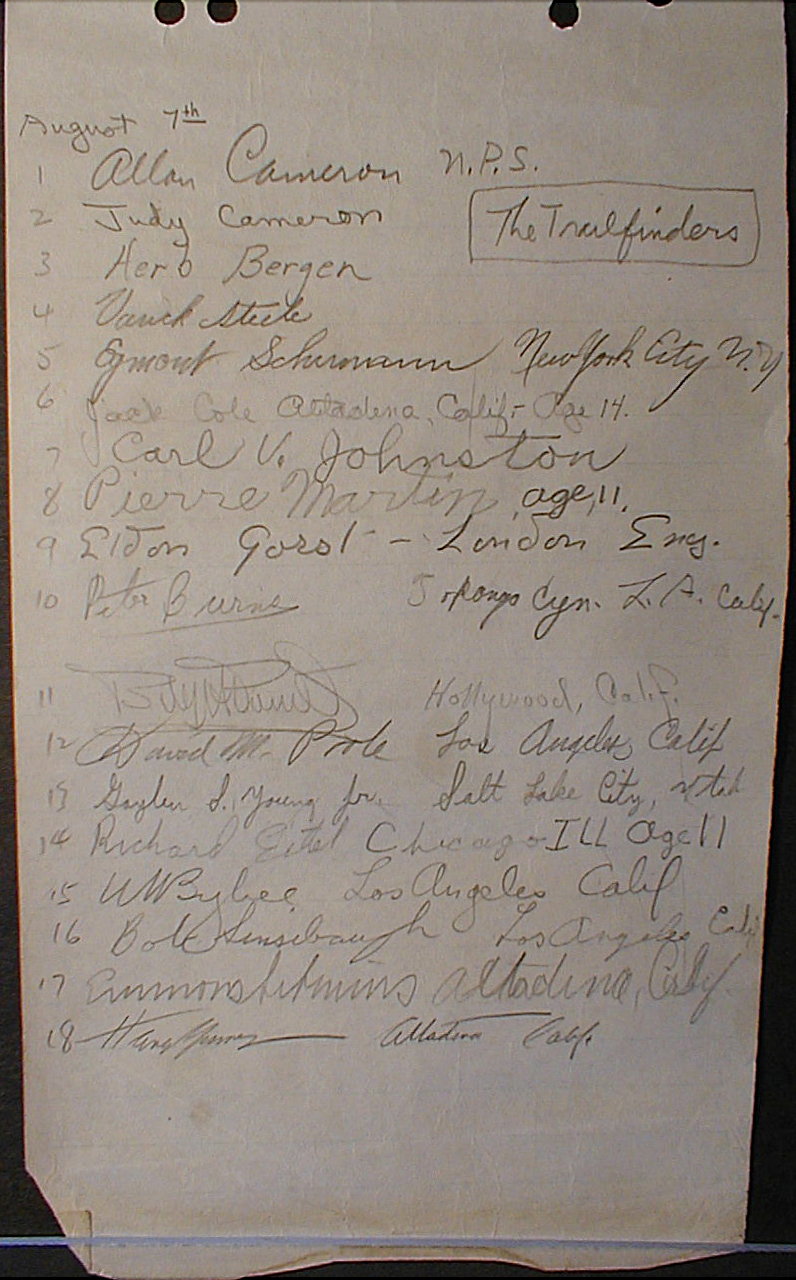 August 7th
1 Allan Cameron N.P.S.
2 Judy Cameron
The Trailfinders
3 Hero Bergen
4 Steele
5 Egmont Schurmann New York City N.Y
6 Jack Cole Altadena, Calif - Age 14.
7 Carl V. Johnston
8 Pierre Martin, age, 11.
9 Eldon Gorst - London Eng.
10 Peter Burns Cyn. L.A. Calif.
11 Hollywood, Calif.
12 David M. Los Angeles, Calif
13 S. Young Jr. Salt Lake City, Utah
14 Richard Eitel Chicago - ILL Age 11
15 Bybee Los Angeles Calif
16 Bob Sensibaugh Los Angeles Calif
17 Altadena, Calif.
18 Altadena Calif.